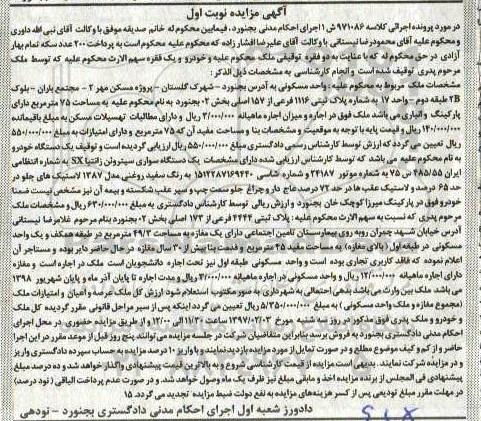 آگهی مزایده نوبت اول
در مورد پرونده اجرائی کلاسه ۹۷۱۰۸۶ ش ۱ اجرای احکام مدنی بجنورد، فیمابین محکوم له خانم صدیقه موفق با وکالت آقای نبی الله داوری
و محکوم علیه آقای محمودرضا نیستانی با وکالت آقای علیرضا افشار زاده که محکوم علیه محکوم است به پرداخت ۲۰۰ عدد سکه تمام بهار
آزادی در حق محکوم له که با عنایت به دو فقره توقیفی ملک محکوم علیه و خودرو و یک فقره سهم الارث محکوم علیه که توسط ملک
مرحوم پدری توقیف شده است و انجام کارشناسی به مشخصات ذیل الذکر:
مشخصات ملک مربوط به محکوم علیه: واحد مسکونی به آدرس بجنورد - شهرک گلستان - پروژه مسکن مهر ۲ - مجتمع باران - بلوک
۲B طبقه دوم - واحد ۱۷ به شماره پلاک ثبتی ۱۱۱۶ فرعی از ۱۵۷ اصلی بخش ۰۲ بجنورد به نام محکوم علیه به مساحت ۷۵ مترمربع دارای
پارکینگ و انباری می باشد ملک فوق در اجاره و میزان اجاره ماهیانه ۳/۰۰۰/۰۰۰ ریال و دارای مطالبات تهسیلات مسکن به مبلغ باقیمانده
۱۴۰/۰۰۰/۰۰۰ ریال و قیمت پایه با توجه به موقعیت و مشخصات بنا و مساحت مفید آن که ۷۵ مترمربع و دارای امتیازات به مبلغ ۵۵۰/۰۰۰/۰۰۰
ریال تعیین می گردد که ارزش توسط کارشناس رسمی دادگستری مبلغ ۵۵۰/۰۰۰/۰۰۰ ریال ارزیابی گردیده است و توقیف یک دستگاه خودرو
به نام محکوم علیه می باشد که توسط کارشناس ارزیابی شده دارای مشخصات یک دستگاه سواری سیتروئن زانتیا SX به شماره انتظامی
ایران ۵۵ ۴۸۵ی به شماره موتور ۲۴۱۸۷ شماره شاسی ۱۵۱۲۲۸۷۱۶۹۴۴۰ به رنگ سفید روغنی مدل ۱۳۸۷ لاستیک های جلو در
حد ۶۵ درصد و لاستیک عقب ها در حد ۷۲ درصد عاج دار و چراغ جلو سمت چپ و سپر عقب شکسته و بیمه آن نیز مشخص نیست ضمنا
خودرو فوق در پارکینگ میرزا کوچک خان بجنورد و ارزش ریالی توسط کارشناس دادگستری به مبلغ ۶۳۰/۰۰۰/۰۰۰ ریال و مشخصات ملک
مرحوم پدری که نسبت به سهم الارث محکوم علیه: پلاک ثبتی ۴۴۴۴ فرعی از ۱۷۳ اصلی بخش ۰۲ بجنورد بنام مرحوم غلامرضا نیستانی
آدرس خیابان شهید چمران روبه روی بیمارستان تامین اجتماعی دارای یک مغازه به مساحت ۴۹/۳ مترمربع در طبقه همکف و یک واحد
مسکونی در طبقه اول (بالای مغازه) به مساحت مفید ۴۵ مترمربع و قدمت بنا از ۳۰ سال مغازه در حال حاضر دایر بوده و مستاجر آن
اعلام نموده که فاقد کاربری تجاری بوده است و واحد مسکونی طبقه اول نیز تحت اجاره دانشجویان است ملک در اجاره است و مغازه
دارای اجاره ماهیانه ۱۲/۰۰۰/۰۰۰ ریال و واحد مسکونی در اجاره ماهیانه ۳/۰۰۰/۰۰۰ ریال و مدت اجاره تا پایان آذر ماه و پایان شهریور ۱۳۹۸
می باشد ملک بین وراث می باشد بدهی احتمالی به شهرداری به صور مکتوب استعلام شود ارزش کل ملک عرصه و اعیان و امتیازات ملک
(مجموع مغازه و ملک واحد مسکونی) به مبلغ ۵/۳۵۰/۰۰۰/۰۰۰ ریال تعیین می گردد اینکه پس از سیر مراحل قانونی مقرر گردیده کل ملک
و خودرو و ملک پدری فوق مذکور در روز سه شنبه مورخ ۱۳۹۷/۰۷/۰۳ ساعت ۱۱/۳۰ الی ۱۲/۰۰ و از طریق مزایده حضوری در محل اجرای
احکام مدنی دادگستری بجنورد به فروش برسد بنابراین متقاضیان شرکت در جلسه مزایده می توانند پنج روز قبل از موعد مقرر در این اجرا
حاضر و از کم و کیف موضوع مطلع و در صورت تمایل از مورد مزایده بازدید نمایند و با واریز ۱۰ درصد مزایده به حساب سپرده دادگستری واریز
و در مزایده شرکت نمایند. بدیهی است مزایده از قیمت کارشناسی شروع و به بالاترین قیمت پیشنهادی واگذار خواهد شد و ده درصد مبلغ
پیشنهادی فی المجلس از برنده مزایده اخذ و مابقی مبلغ نیز ظرف یک ماه وصول خواهد شد. و در صورت عدم پرداخت الباقی (نود درصد)
در مهلت مقرر مبلغ تودیعی پس از کسر هزینه های مزایده به نفع دولت ضبط مزایده تجدید می گردد. ۱۵
دادورز شعبه اول اجرای احکام مدنی دادگستری بجنورد - نودهی